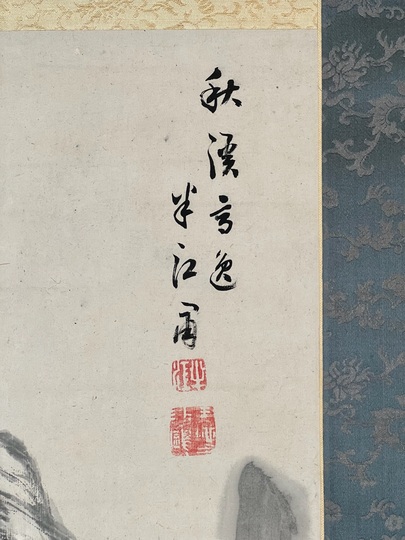 秋溪高逸
半江肅